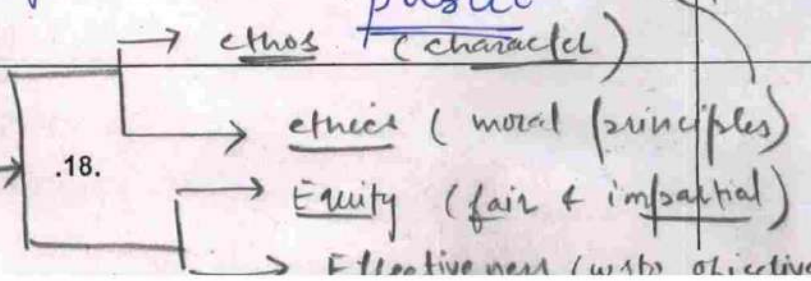 → ethos (character)
→ ethics (moral principles)
.18.
→ Equity (fair & impartial)
→ Effectiveness (wrto objective